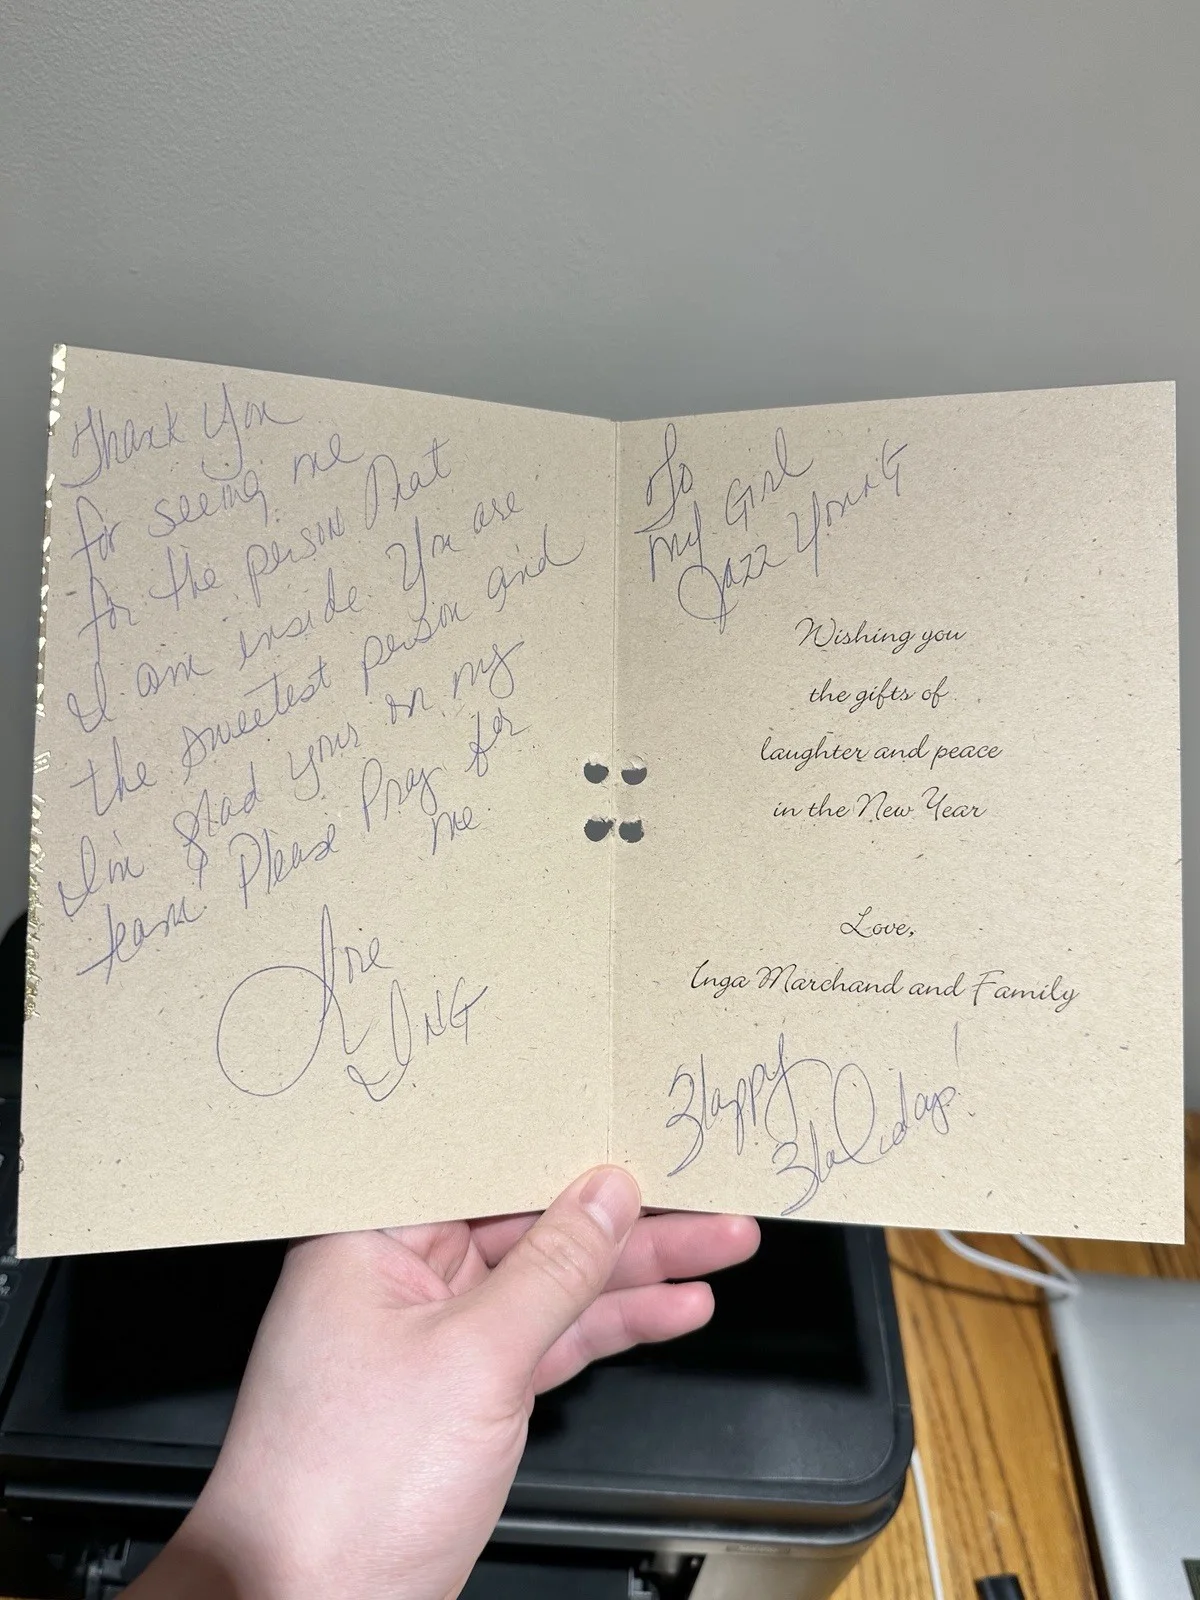 Thank You
for seeing me
for the person that
I am inside. You are
the sweetest person and
I'm glad your on my
team. Please Pray for
me
Love
ING
To
my Girl
Jazz Young
Wishing you
the gifts of
laughter and peace
in the New Year
Love,
Inga Marchand and Family
Happy
Holidays!